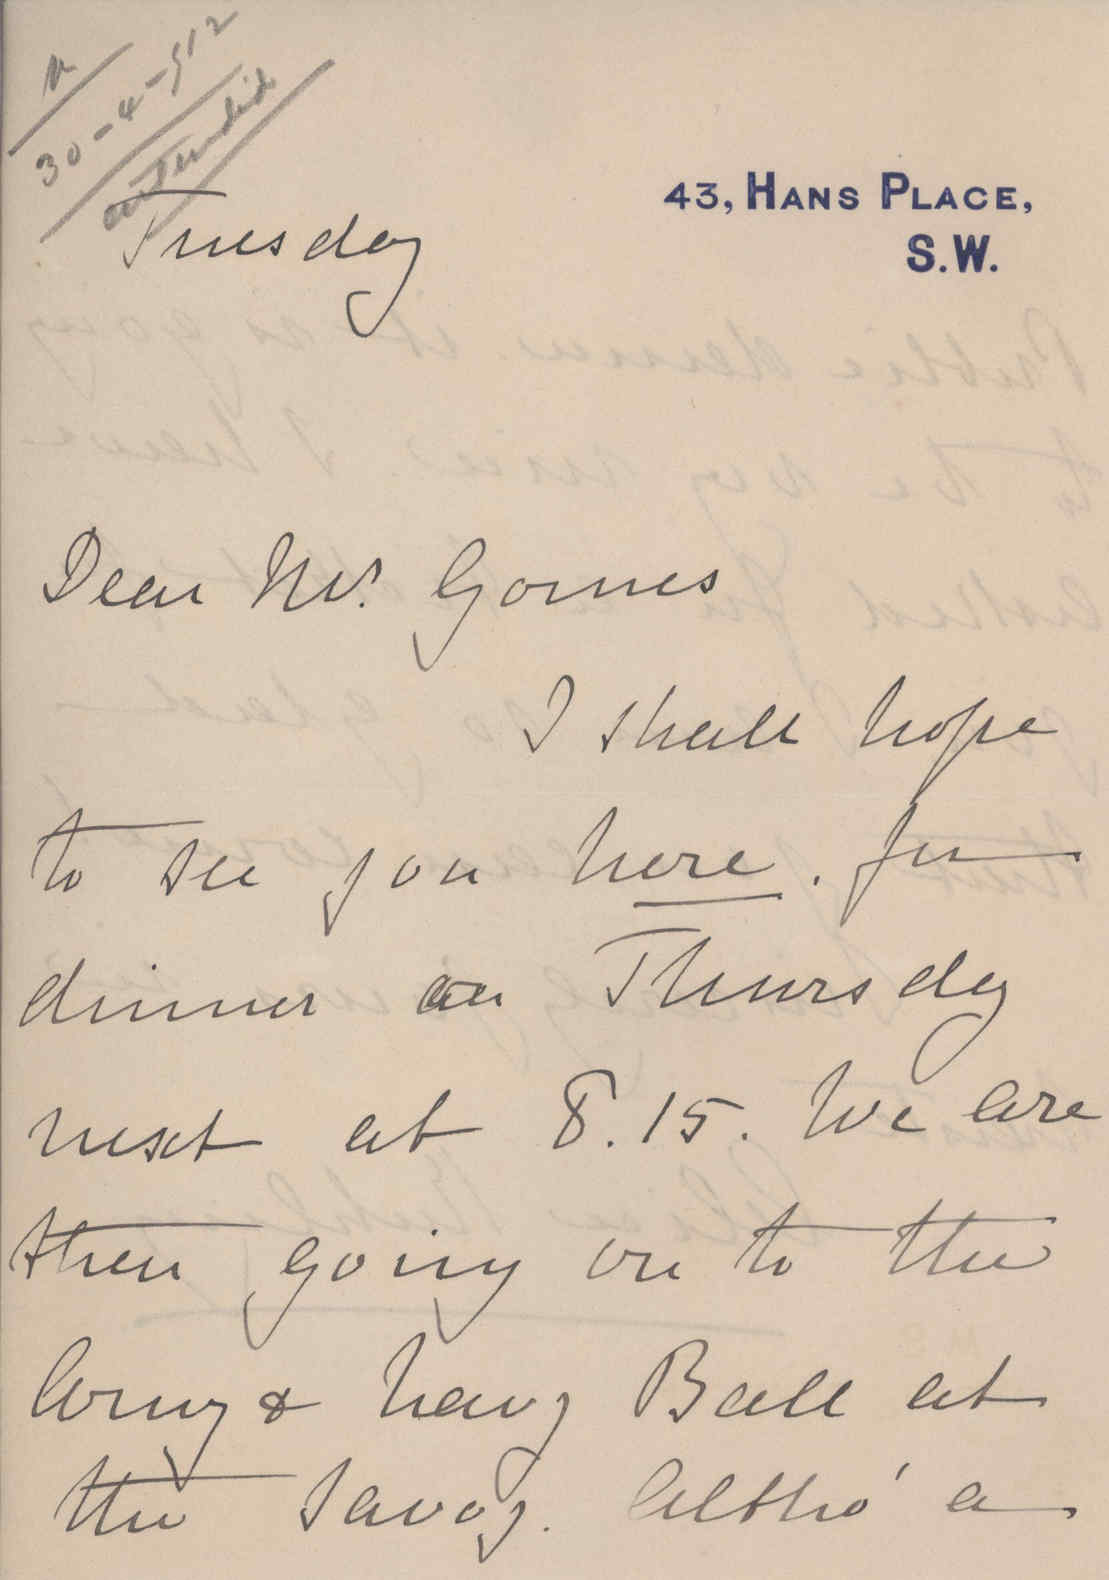 30-4-912
atendido
43, HANS PLACE,
S.W.
Tuesday
Dear Mr. Gomes
I shall hope
to see you here. for
dinner on Thursday
next at 8.15. We are
then going on to the
Army & Navy Ball at
the Savoy. Altho' a